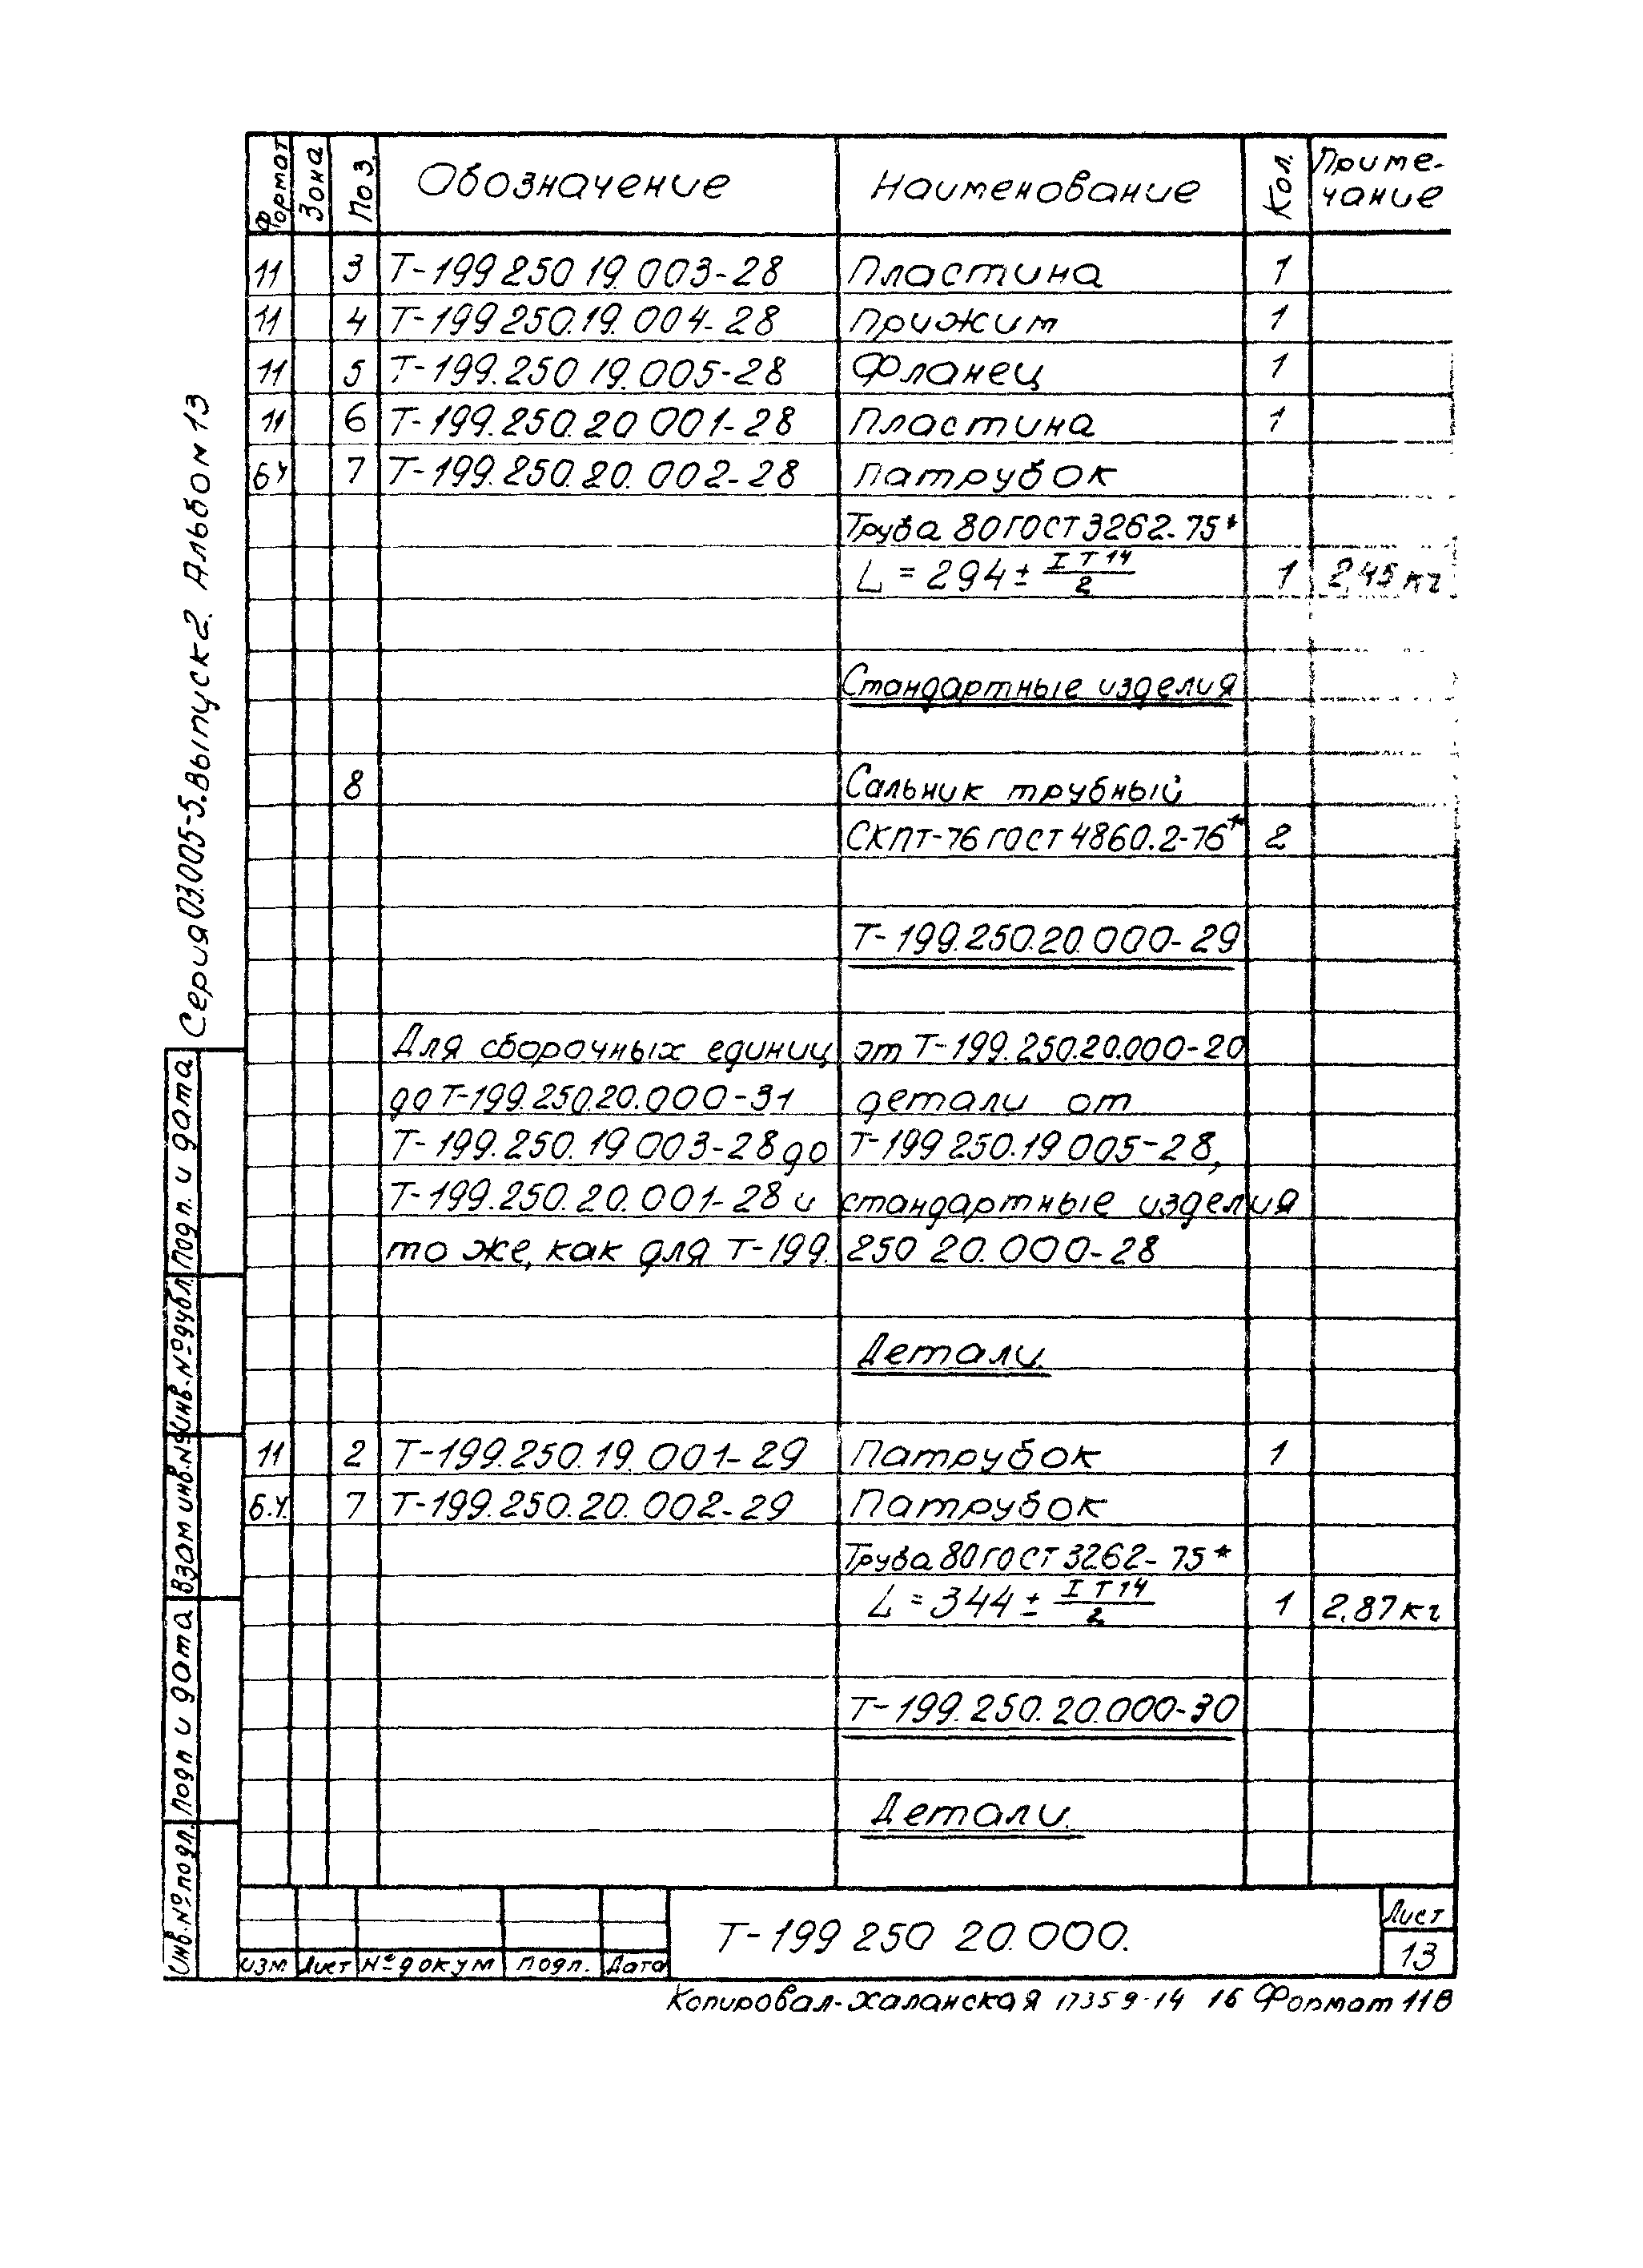 Формат Зона Поз. Обозначение Наименование Кол. Приме-
чание
11 3 Т-199 250 19. 003-28 Пластина 1
11 4 Т-199 250.19. 004-28 Прижим 1
11 5 Т-199.250 19.005-28 Фланец 1
11 6 Т-199.250.20 001-28 Пластина 1
БЧ 7 Т-199.250.20. 002-28 Патрубок
Труба 80 ГОСТ 3262-75*
L = 294 ± IT14/2 1 2,45 кг
Стандартные изделия
8 Сальник трубный
СКПТ-76 ГОСТ 4860.2-76* 2
Т-199.250.20.000-29
Для сборочных единиц от Т-199.250.20.000-20
до Т-199.250.20.000-31 детали от
Т-199.250.19 003-28 до Т-199 250.19 005-28,
Т-199.250.20.001-28 и стандартные изделия
то же, как для Т-199. 250 20.000-28
Детали.
11 2 Т-199.250.19.001-29 Патрубок 1
Б.Ч. 7 Т-199.250.20.002-29 Патрубок
Труба 80 ГОСТ 3262-75*
L = 344 ± IT14/2 1 2,87 кг
Т-199.250.20.000-30
Детали.
Т-199 250 20.000.
Лист
13
Изм Лист № докум Подп. Дата
Копировал-Халанская 17359-14 16 Формат 11В
Серия 03.005-5. Выпуск 2. Альбом 13
Подп. и дата
Инв. № дубл.
Взам инв. №
Подп и дата
Инв. № подл.